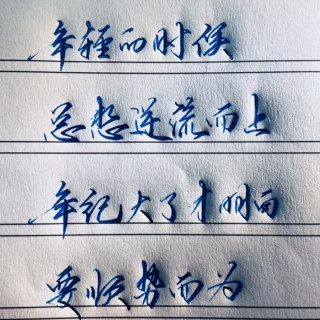 年轻的时候
总想逆流而上
年纪大了才明白
要顺势而为